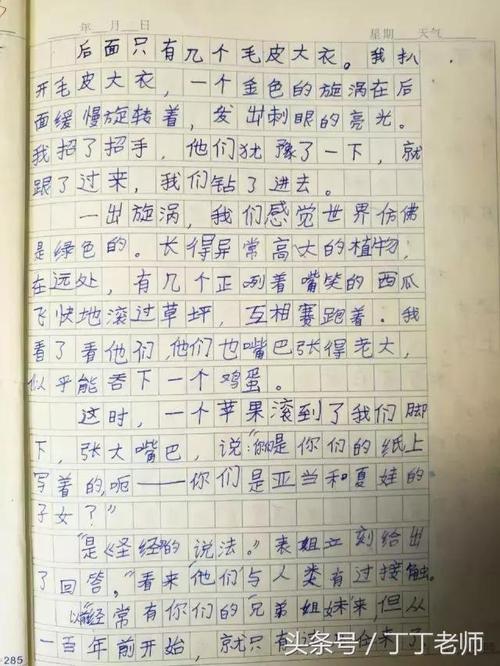 年 月 日 星期 天气
后面只有几个毛皮大衣。我扒
开毛皮大衣，一个金色的旋涡在后
面缓慢旋转着，发出刺眼的亮光。
我招了招手，他们犹豫了一下，就
跟了过来，我们钻了进去。
一出旋涡，我们感觉世界仿佛
是绿色的。长得异常高大的植物，
在远处，有几个正咧着嘴笑的西瓜
飞快地滚过草坪，互相赛跑着。我
看了看他们，他们也嘴巴张得老大，
似乎能吞下一个鸡蛋。
这时，一个苹果滚到了我们脚
下，张大嘴巴，说：“你们是你们的纸上
写着的，呃——你们是亚当和夏娃的
子女？”
“是《圣经》的说法。”表姐立刻给出
了回答，“看来他们与人类有过接触。
以前经常有你们的兄弟姐妹来，但从
一百年前开始，就只有
285
头条号/丁丁老师